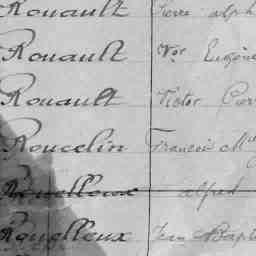 Rouault Pierre alph
Rouault Vor Eugène
Rouault Victor
Roucelin Francois M
Rouelloux alfred
Rouelloux Jean Bapti